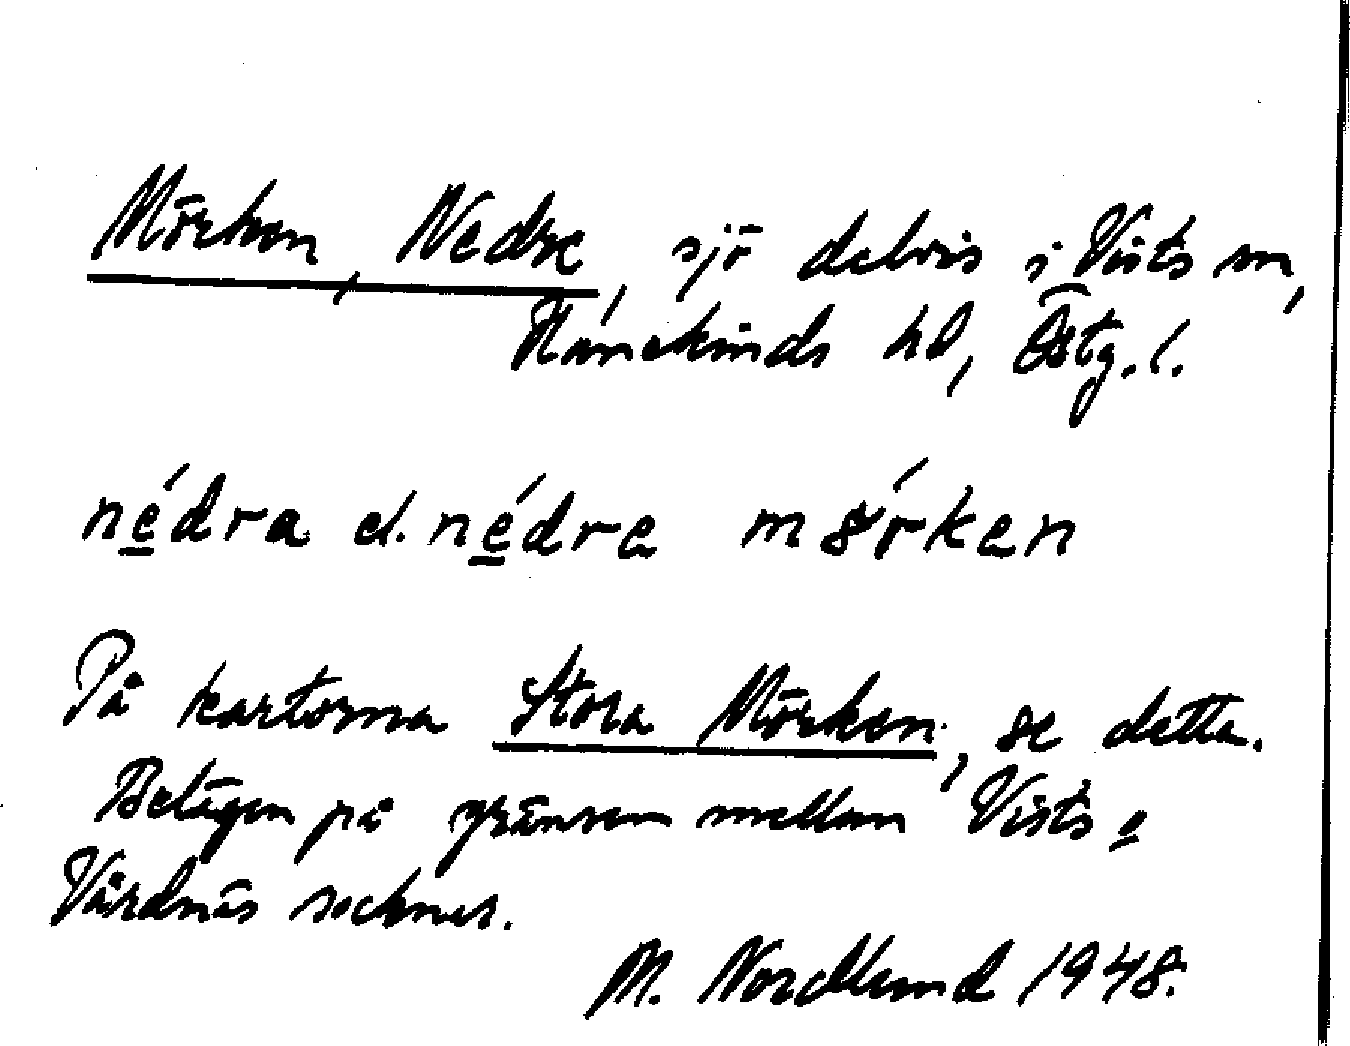 Mörken, Nedre, sjö delvis i Vists sn,
Hanekinds hd, Östg. l.
nédra el. nédre mörken
På kartorna Stora Mörken, se detta.
Belägen på gränsen mellan Vists o
Vårdnäs socknar.
M. Nordlund 1948.